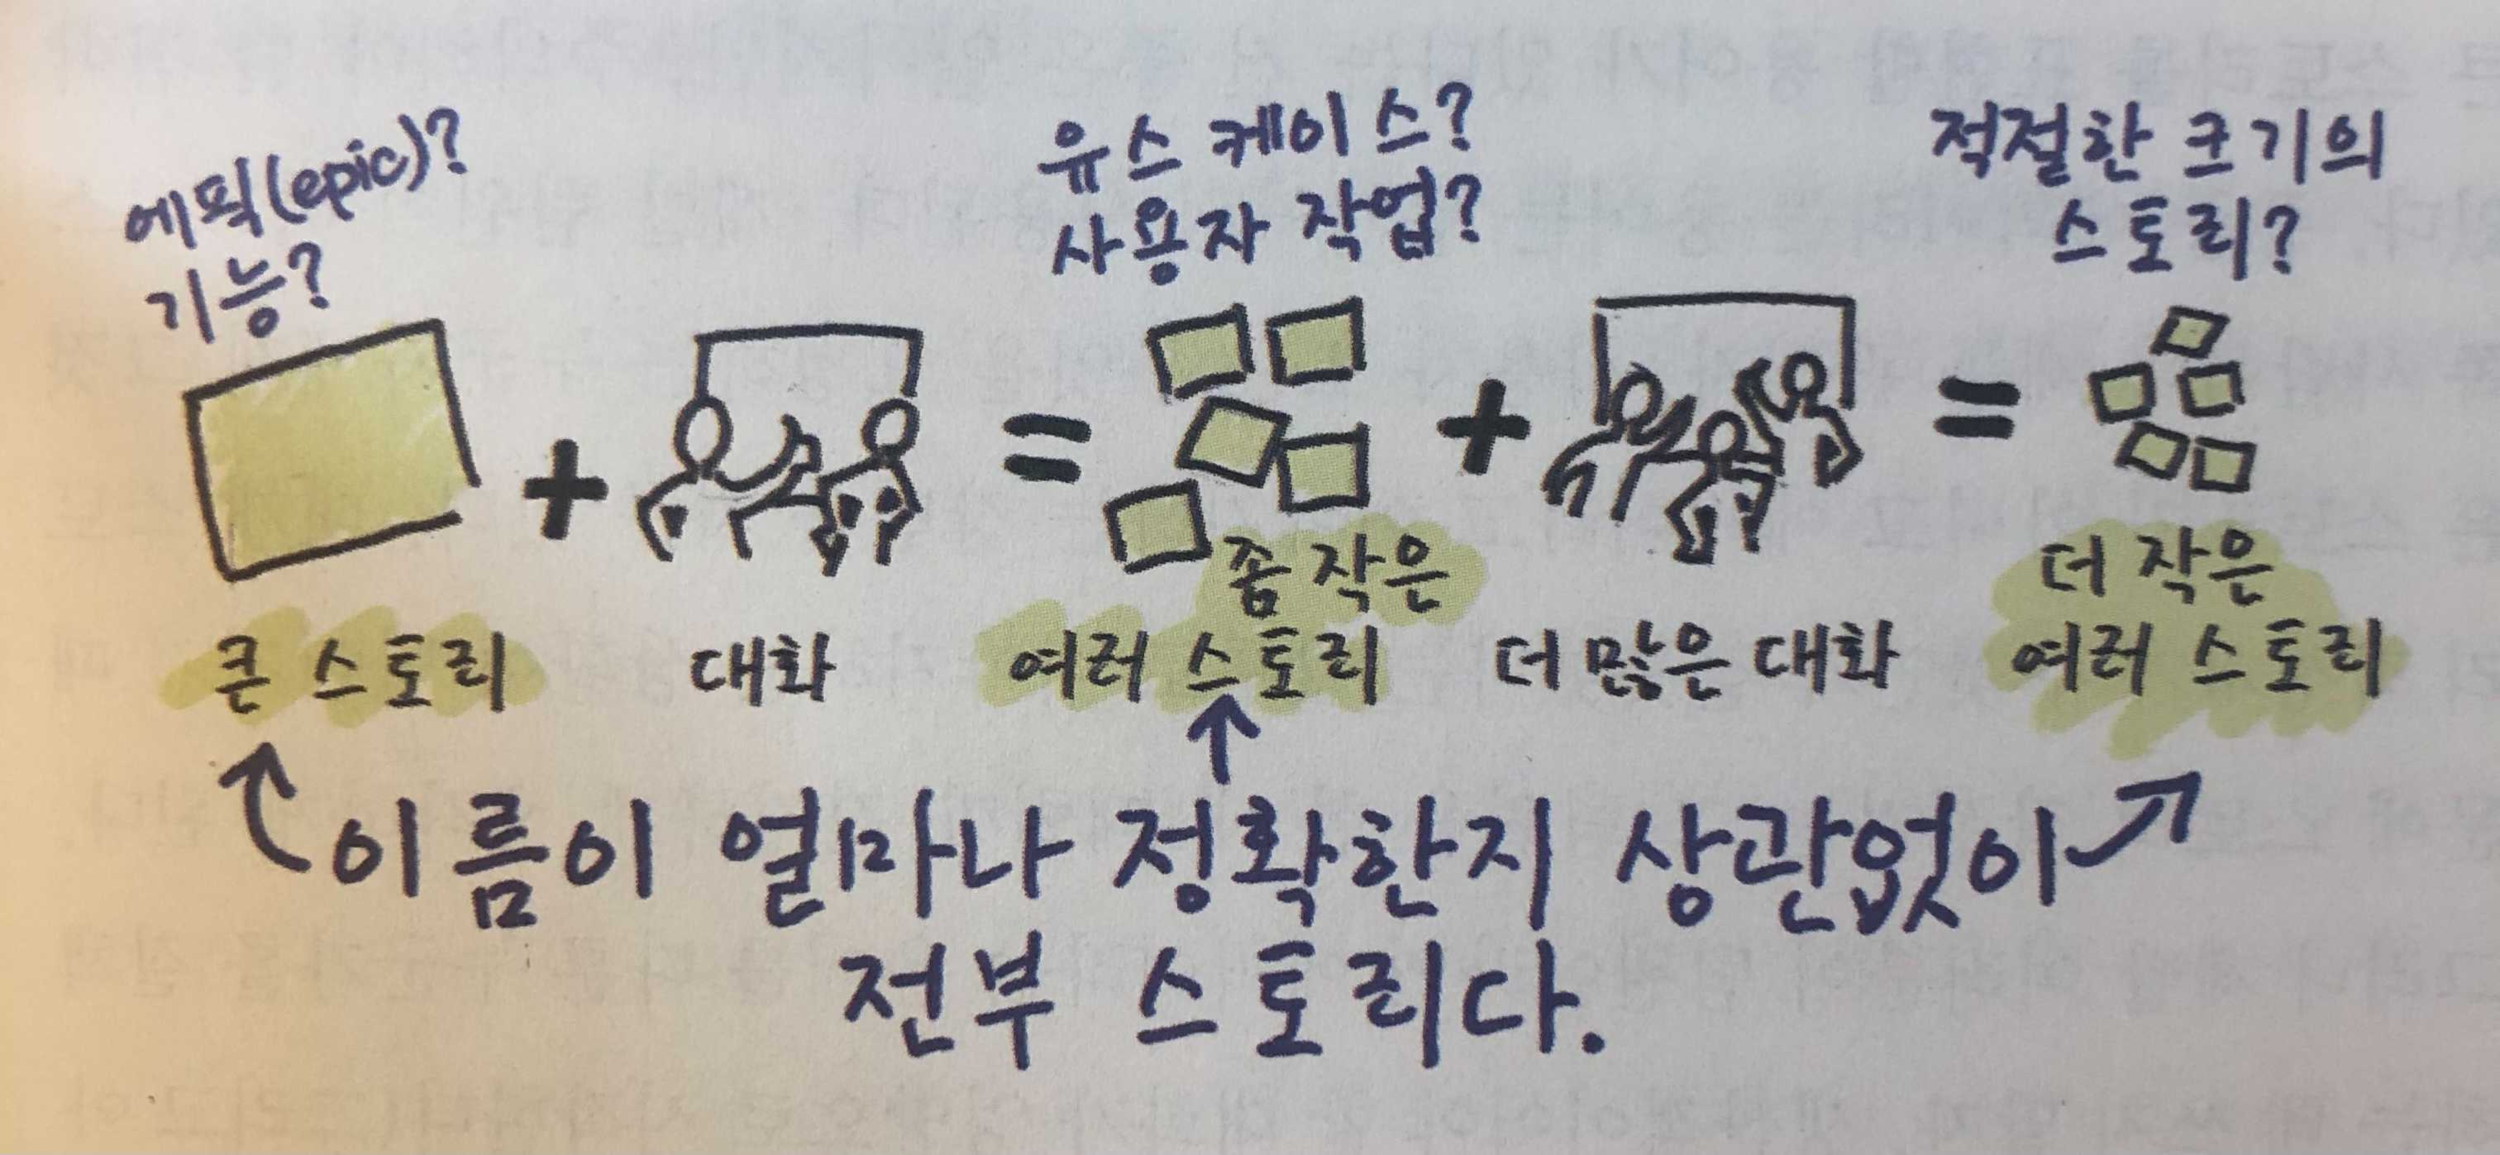 에픽(epic)?
기능?
유스 케이스?
사용자 작업?
적절한 크기의
스토리?
+
=
+
=
큰 스토리
대화
좀 작은
여러 스토리
더 많은 대화
더 작은
여러 스토리
이름이 얼마나 정확한지 상관없이
전부 스토리다.